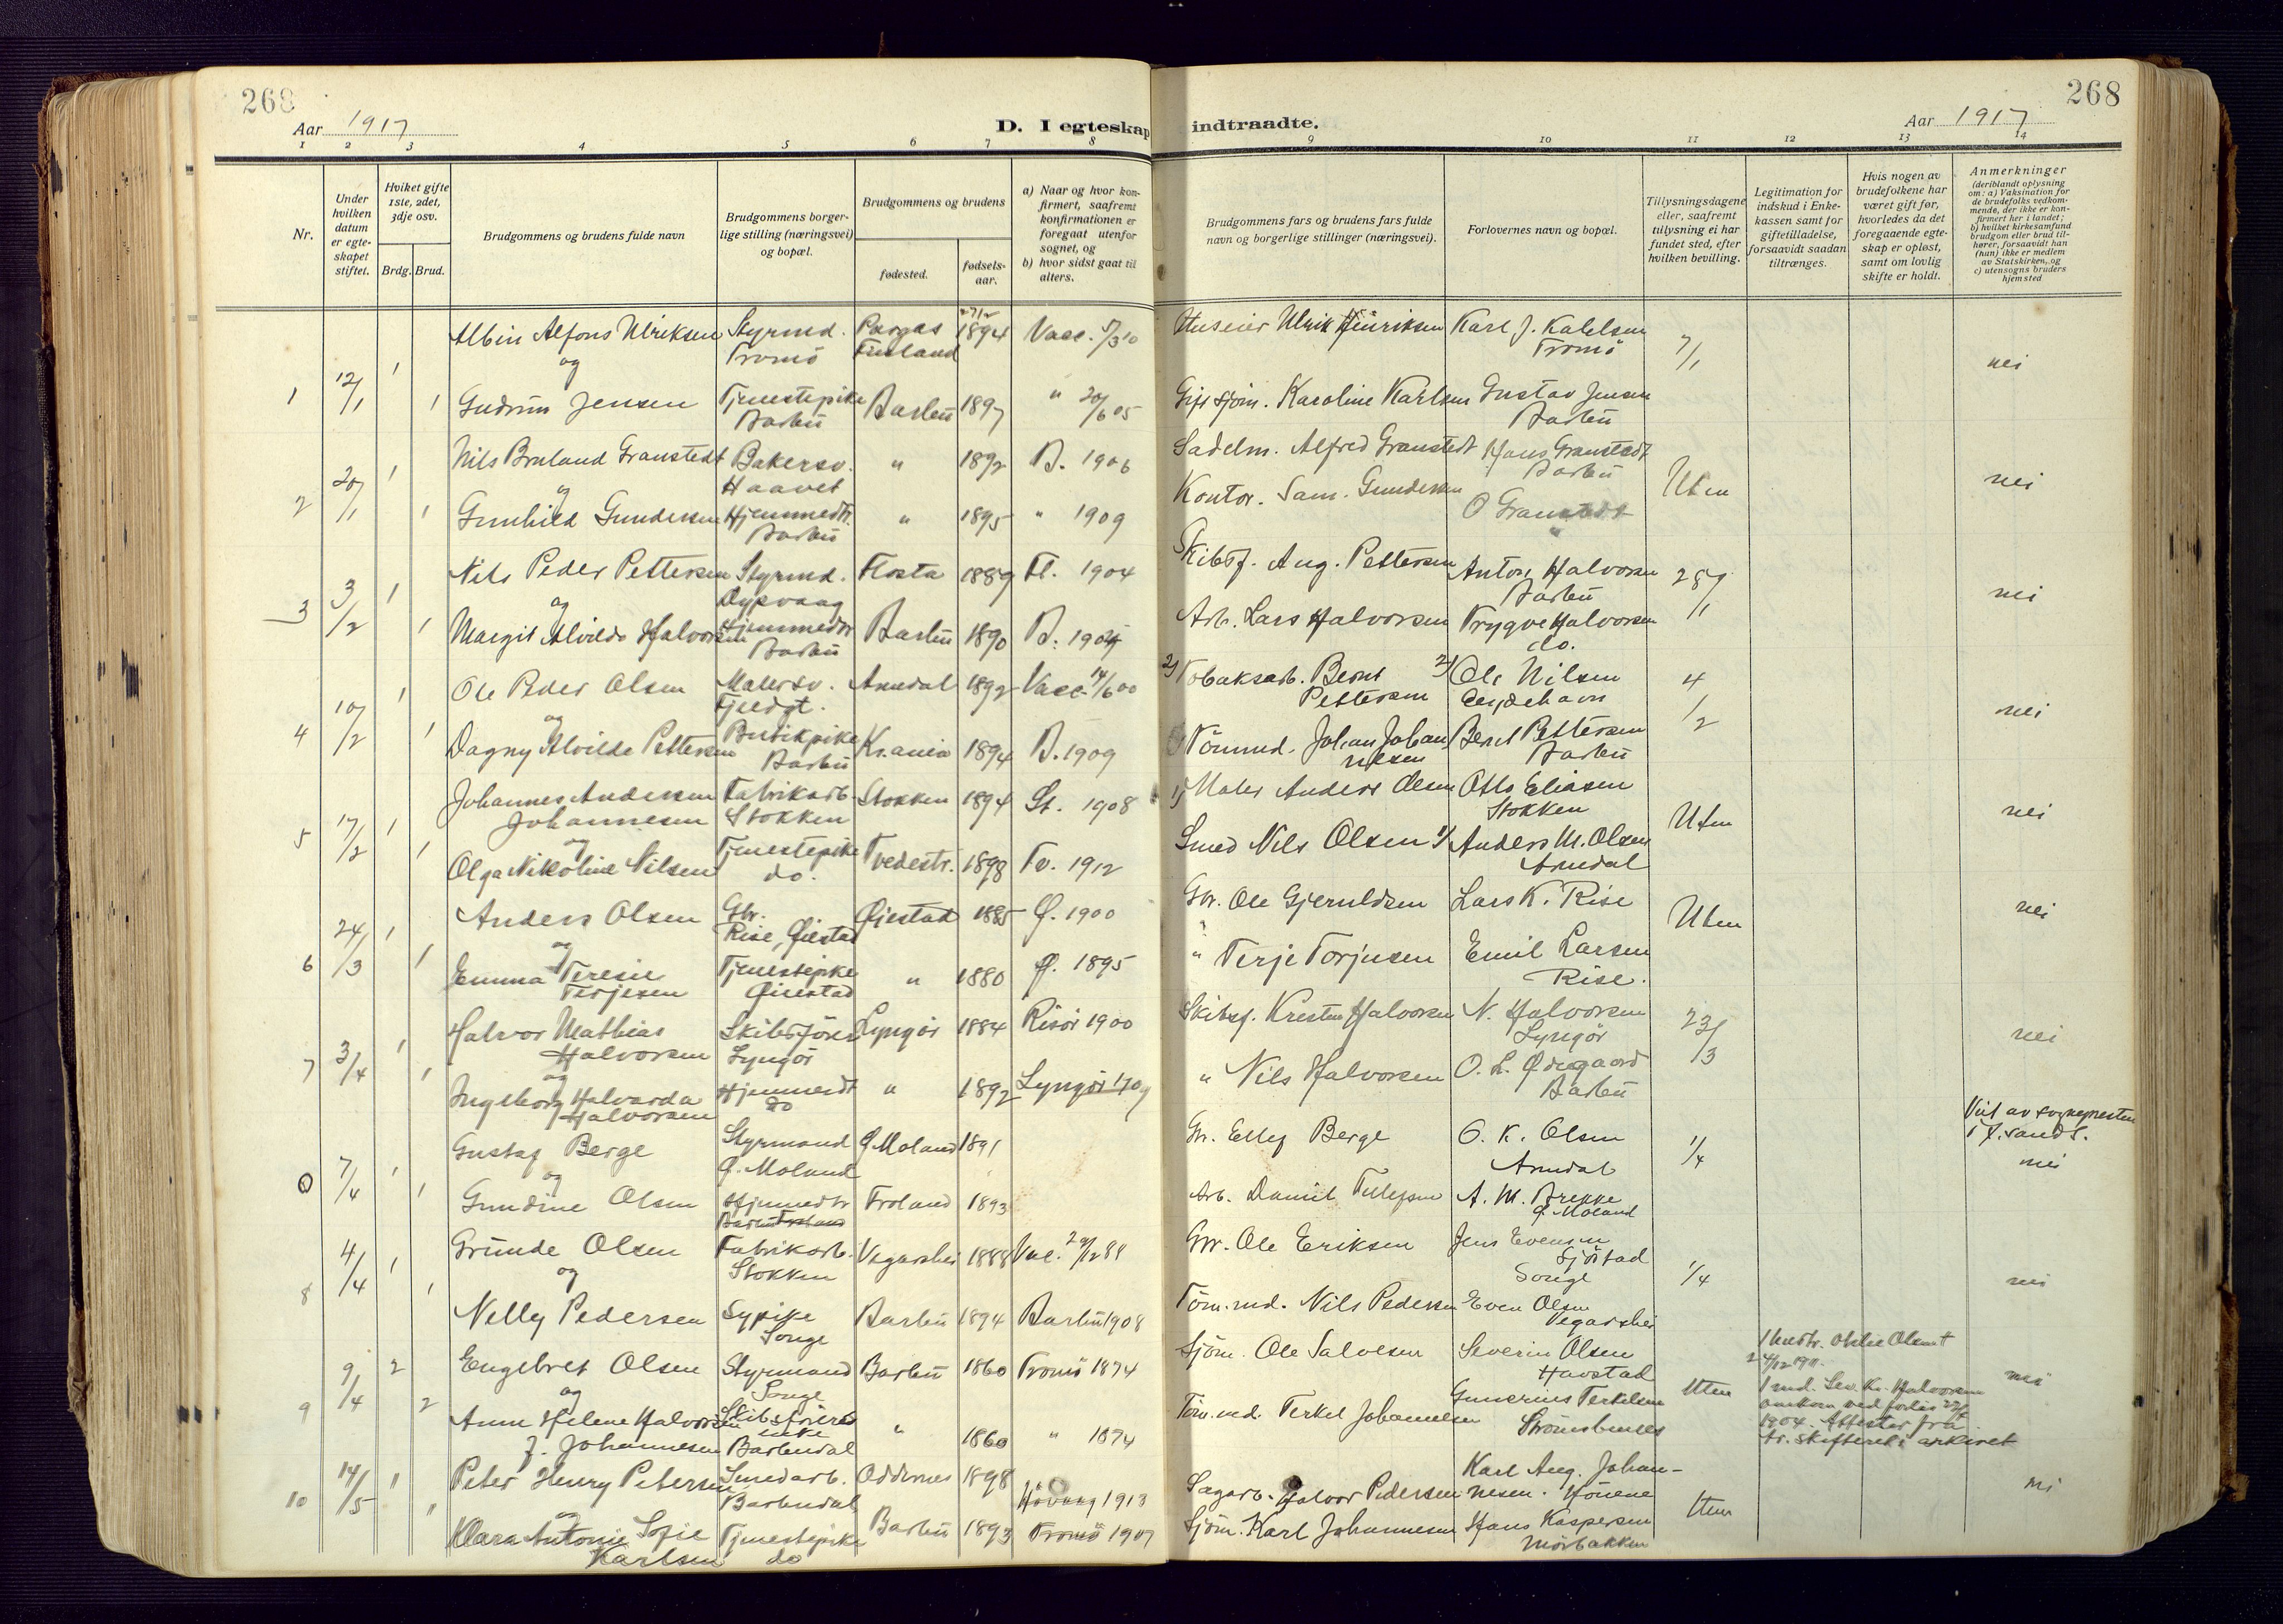 268
Aar 1917
D. I egteskap indtraadte.
Aar 1917
268
1 2 3 4 5 6 7 8 9 10 11 12 13 14
Nr.
Under hvilken datum er egteskapet stiftet.
Hviket gifte 1ste, 2det, 3dje osv.
Brdg. Brud.
Brudgommens og brudens fulde navn
Brudgommens borgerlige stilling (næringsvei) og bopæl.
Brudgommens og brudens
fødested.
fødselsaar.
a) Naar og hvor konfirmert, saafremt konfirmationen er foregaat utenfor sognet, og
b) hvor sidst gaat til alters.
Brudgommens fars og brudens fars fulde navn og borgerlige stillinger (næringsvei).
Forlovernes navn og bopæl.
Tillysningsdagene eller, saafremt tilysning ei har fundet sted, efter hvilken bevilling.
Legitimation for indskud i Enkekassen samt for giftetilladelse, forsaavidt saadan tiltrænges.
Hvis nogen av brudefolkene har været gift før, hvorledes da det foregaaende egteskap er opløst, samt om lovlig skifte er holdt.
Anmerkninger
(deriblandt oplysning om: a) Vaksination for de brudefolks vedkommende, der ikke er konfirmert her i landet; b) hvilket kirkesamfund brudgom eller brud tilhører, forsaavidt han (hun) ikke er medlem av Statskirken, og c) utensogns bruders hjemsted
Albin Alfons Ulriksen Styrmd. Pargas 27/12 1894 Vacc. Huseier Ulrik Henriksen Karl J. Kahlsen 7/1
og Tromö Finland Tromö nei
1 12/1 1 1 Gudrun Jensen Tjenestepike Barbu 1897 " 20/6 05 Gift sjöm. Karoline Karlsen Gustav Jensen
Barbu Barbu
Nils Bruland Granstedt Bakersv. " 1892 B. 1906 Sadelm. Alfred Granstedt Hans Granstedt
2 20/1 1 1 og Haavet Barbu Uten nei
Gunhild Gundersen Hjemmedtr. " 1895 " 1909 Kontor. Sam. Gundersen O Granstedt
Barbu "
Nils Peder Pettersen Styrmd. Flosta 1889 Fl. 1904 Skibsf. Aug. Pettersen Anton Halvorsen
3 3/2 1 1 og Dypvaag Barbu 28/1 nei
Margit Alvilde Halvorsen Hjemmedtr Barbu 1890 B. 1904 Arb. Lars Halvorsen Trygve Halvorsen
Barbu do.
Ole Peder Olsen Malersv. Arendal 1892 Vacc. 14/6 00 2) Tobaksarb. Bernt Pettersen 2) Ole Nilsen
4 10/2 1 1 og Fjeldgt. Eydehavn 4/2 nei
Dagny Alvilde Pettersen Butikpike Kr.ania 1894 B. 1909 Tömmd. Johan Johannesen Bernt Pettersen
Barbu Barbu
Johannes Andersen Fabrikarb. Stokken 1894 St. 1908 1) Maler Anders Olsen Otto Eliasen
5 17/2 1 1 Johannesen Stokken Stokken Uten nei
og
Olga Nikoline Nilsen Tjenestepike Tvedestr. 1898 Tv. 1912 Smed Nils Olsen 1) Anders M. Olsen
do. Arendal
Anders Olsen Gbr. Øiestad 1885 Ø. 1900 Gbr. Ole Gjeruldsen Lars K. Rise
6 24/3 1 1 og Rise, Øiestad Uten nei
Emma Teresie Tjenestepike " 1880 Ø. 1895 " Terje Torjusen Emil Larsen
Terjesen Øiestad Rise.
Halvor Mathias Skibsförer Lyngör 1884 Risör 1900 Skibsf. Kresten Halvorsen N. Halvorsen
7 3/4 1 1 Halvorsen Lyngör Lyngör 23/3 nei
og
Ingeborg Halvarda Hjemmedt " 1892 Lyngör 1909 " Nils Halvorsen O. L. Ødegaard
Halvorsen do Barbu
Gustaf Berge Styrmand Ø. Moland 1891 Gr. Ellef Berge O. K. Olsen 1/4 Viet av sognepresten
0 7/4 1 1 og Ø. Moland Arendal nei
Gundine Olsen Hjemmedtr Froland 1893 Arb. Daniel Tellefsen A. M. Brekke
Ø. Moland
Grunde Olsen Fabrikarb. Vegarshei 1888 Vac. Gbr. Ole Eriksen Jens Evensen
8 4/4 1 1 og Stokken Songe 1/4 nei
Nelly Pedersen Sypike Barbu 1894 Barbu 1908 Töm.md. Nils Pedersen Even Olsen
Songe Vegarshei
Engebret Olsen Styrmand Barbu 1860 Tromö 1874 Sjöm. Ole Salvesen Severin Olsen
9 9/4 2 2 og Songe Havstad Uten nei
Anne Helene Halvorsen Skibsförer enke " 1860 " 1874 Töm.md. Terkel Johannesen Gunerius Terkelsen
f. Johannesen Barbudal Strömsbunes
1904. Attester fra
Peter Henry Petersen Smedarb. Oddernes 1898 Hövaag 1913 Sagarb. Halvor Pedersen Karl Aug. Johannesen.
10 14/5 1 " og Barbudal Uten nei
Klara Antonie Sofie Tjenestepike Barbu 1893 Tromö 1907 Sjöm. Karl Johannesen Hans Kaspersen
Karlsen do